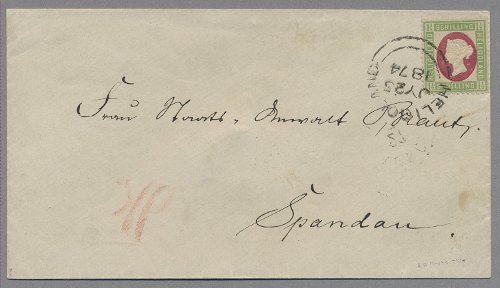 SCHILLING
HELIGOLAND
SCHILLING
HELIGOLAND
JY 23
1874
Frau Staats-Anwalt
Spandau.